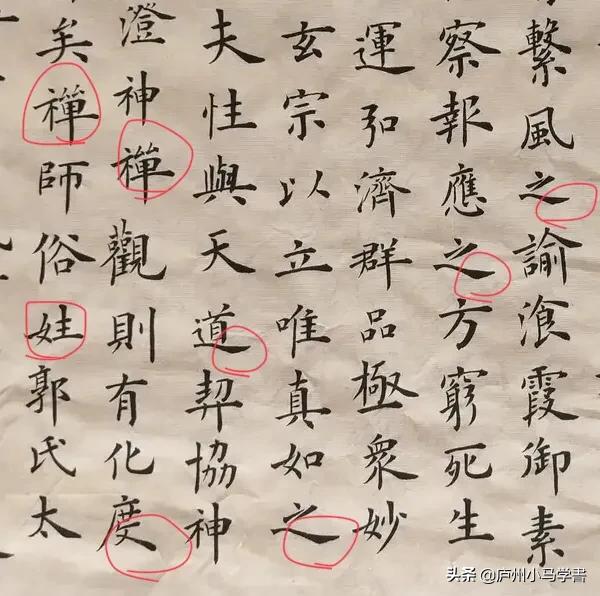 繫風之諭飡霞御素
察報應之方窮死生
運弘濟群品極眾妙
玄宗以立唯真如之
夫性與天道契協神
澄神禪觀則有化度
矣禪師俗姓郭氏太
头条 @庐州小马学書